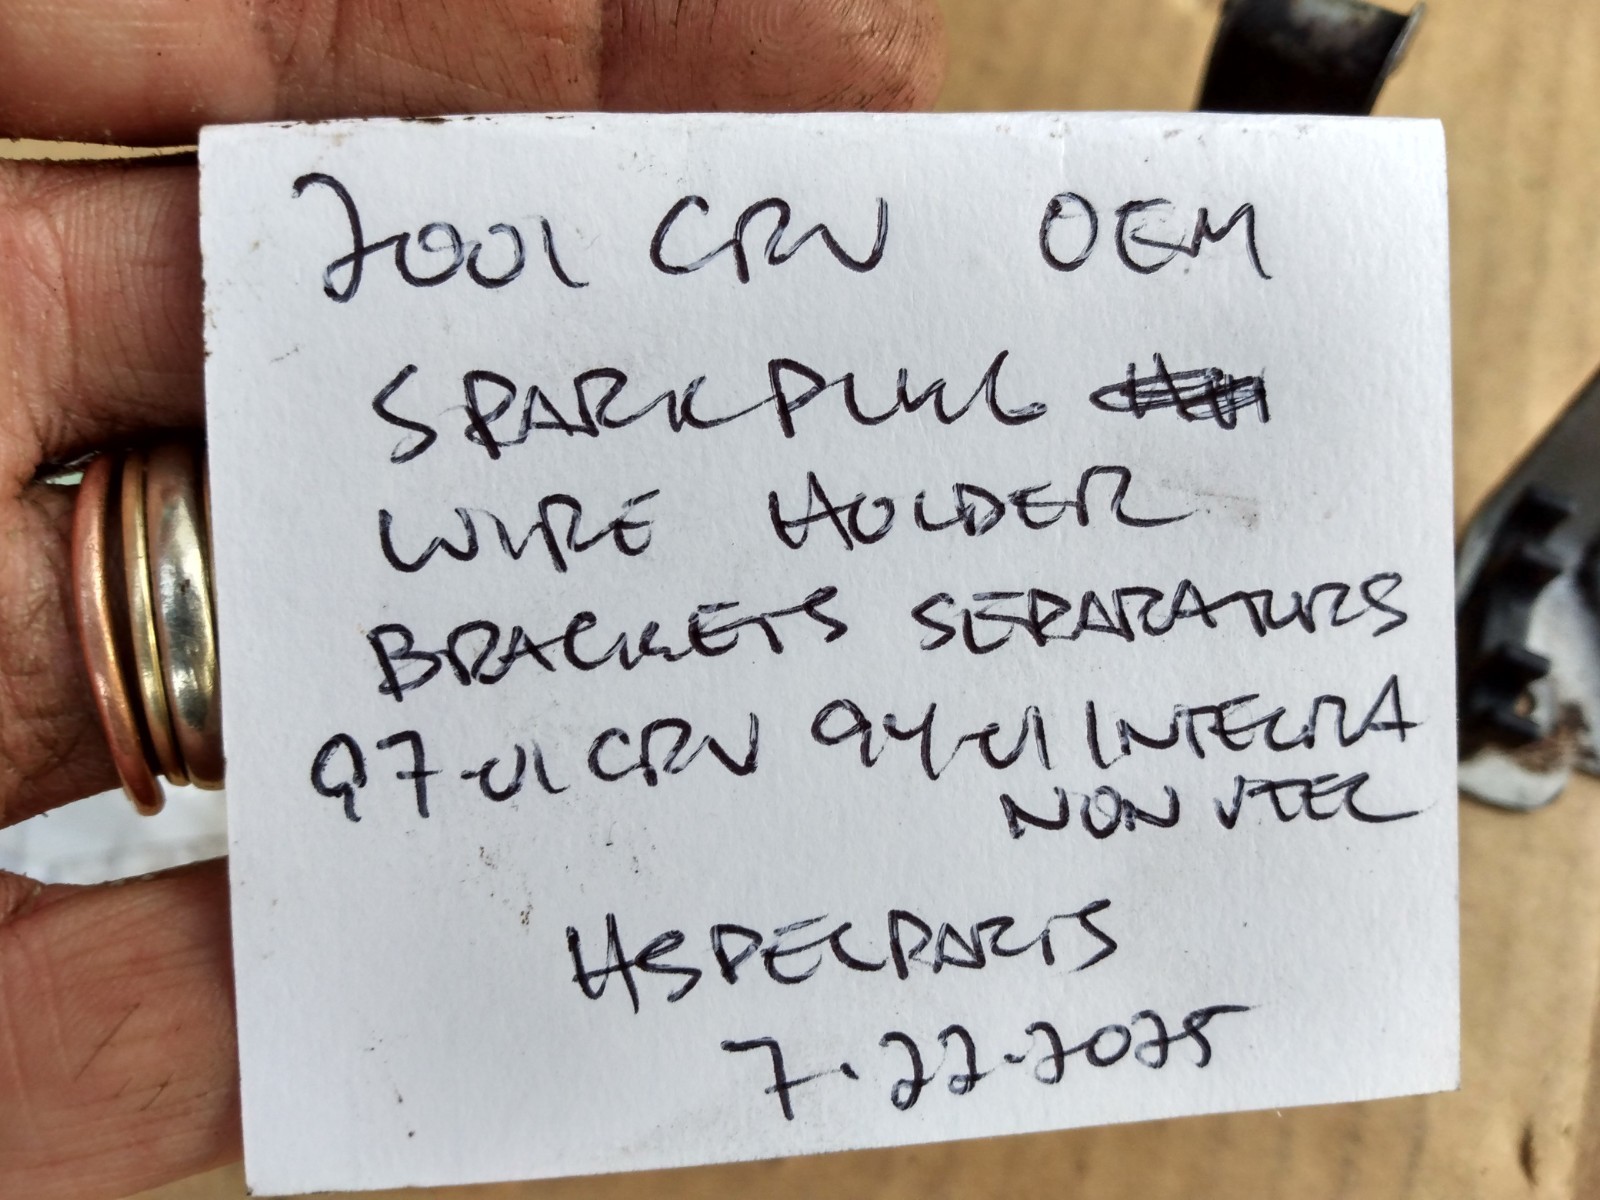 2001 CRV OEM
SPARK PLUG
WIRE HOLDER
BRACKETS SEPARATORS
97-01 CRV 94-01 INTEGRA
NON VTEC
HSPECPARTS
7.22.2025